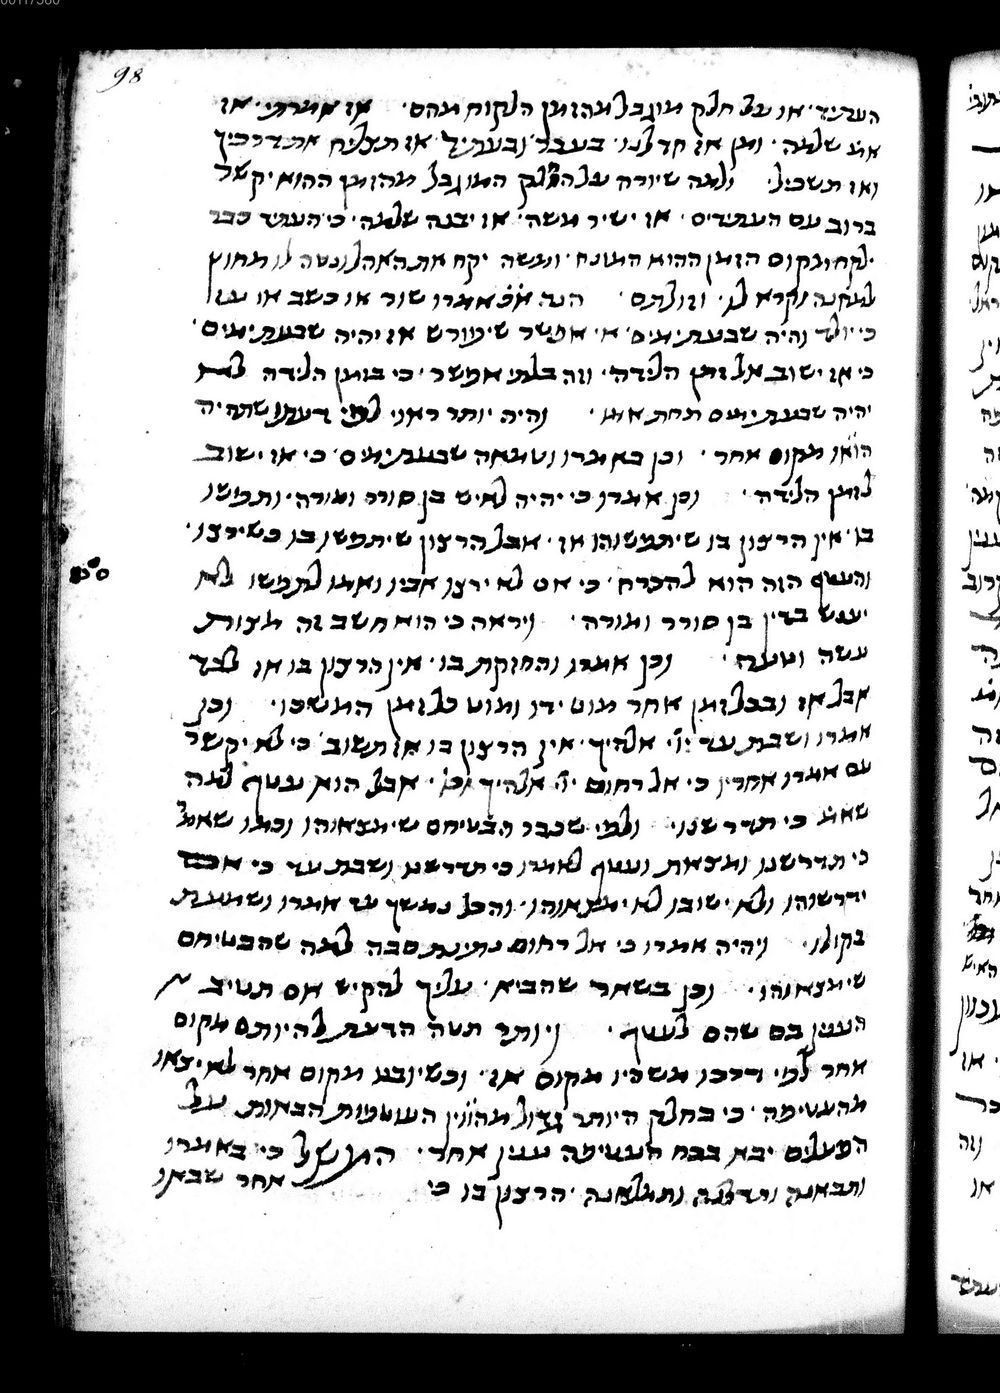 98
העתיד· או על חלק מוגבל מהזמן הלקוח מהם· אז אמרתי· אז
אמ׳ שלמה· ומן אז חדלנו· בעבר· ובעתיד· אז תצליח את דרכיך
ואז תשכיל· ולמה שיורה על החלק המוגבל מהזמן ההוא יקשר
ברוב עם העתידים· אז ישיר משה· אז יבנה שלמה· כי העתיד כבר
ילקח מקום הזמן ההוא המונח· ומשה יקח את האהל ונטה לו מחוץ
למחנה וקרא לו· וזולתם· הנה אמרו שור או כשב או עז
כי יולד והיה שבעת ימים· אי אפשר שיפורש אז יהיה שבעת ימים·
כי אז ישוב אל זמן הלידה· וזה בלתי אפשר· כי בזמן הלידה לא
יהיה שבעת ימים תחת אמו· והיה יותר ראוי לפי דעתו שתהיה
הוא״ו מקום אחר· וכן באמרו וטמאה שבעת ימים· כי אז ישוב
לזמן הלידה· וכן אמרו כי יהיה לאיש בן סורר ומורה· ותפשו
בו· אין הרצון בו שיתפשוהו אז· אבל הרצון שיתפשו בו כשירצו·
והעטף הזה הוא להכרח· כי אם לא ירצו אביו ואמו לתפשו לא
יענש בדין בן סורר ומורה· ויראה כי הוא חשב זה מצות
עשה וטעה· וכן אמרו והחזקת בו· אין הרצון בו אז לבד
אבל אז ובכל זמן אחר מוט ידו ומוט כל זמן המשכו· וכן
אמרו ושבת עד יי׳ אלהיך· אין הרצון בו אז תשוב· כי לא יקשר
עם אמרו אחריו כי אל רחום יי׳ אלהיך וכו׳· אבל הוא עטף למה
שאמ׳ כי תדרשנו· ולפי שכבר הבטיחם שימצאוהו וכמו שאמ׳
כי תדרשנו ומצאת ועטף לאמרו כי תדרשנו ושבת עד כי אם
ידרשוהו ולא ישובו לא ימצאוהו· והכל נמשך עד אמרו ושמעת
בקולו· ויהיה אמרו כי אל רחום נתינת סבה למה שהבטיחם
שימצאוהו· וכן בשאר שהביא· עליך להקיש אם תטיב
העיין בם שהם לעטף· ויותר תטה הדעת להיותם מקום
אחר לפי דרכו משהיו מקום אז· וכשיובע מקום אחר לא יצאו
מהעטיפה· כי בחלק היותר גדול מהווי״ן העוטפות הבאות על
הפעלים יבא בכח העטיפה ענין אחר· המשל כי באמרו
ותבאנה ותדלנה ותמלאנה· הרצון בו כי אחר שבאו